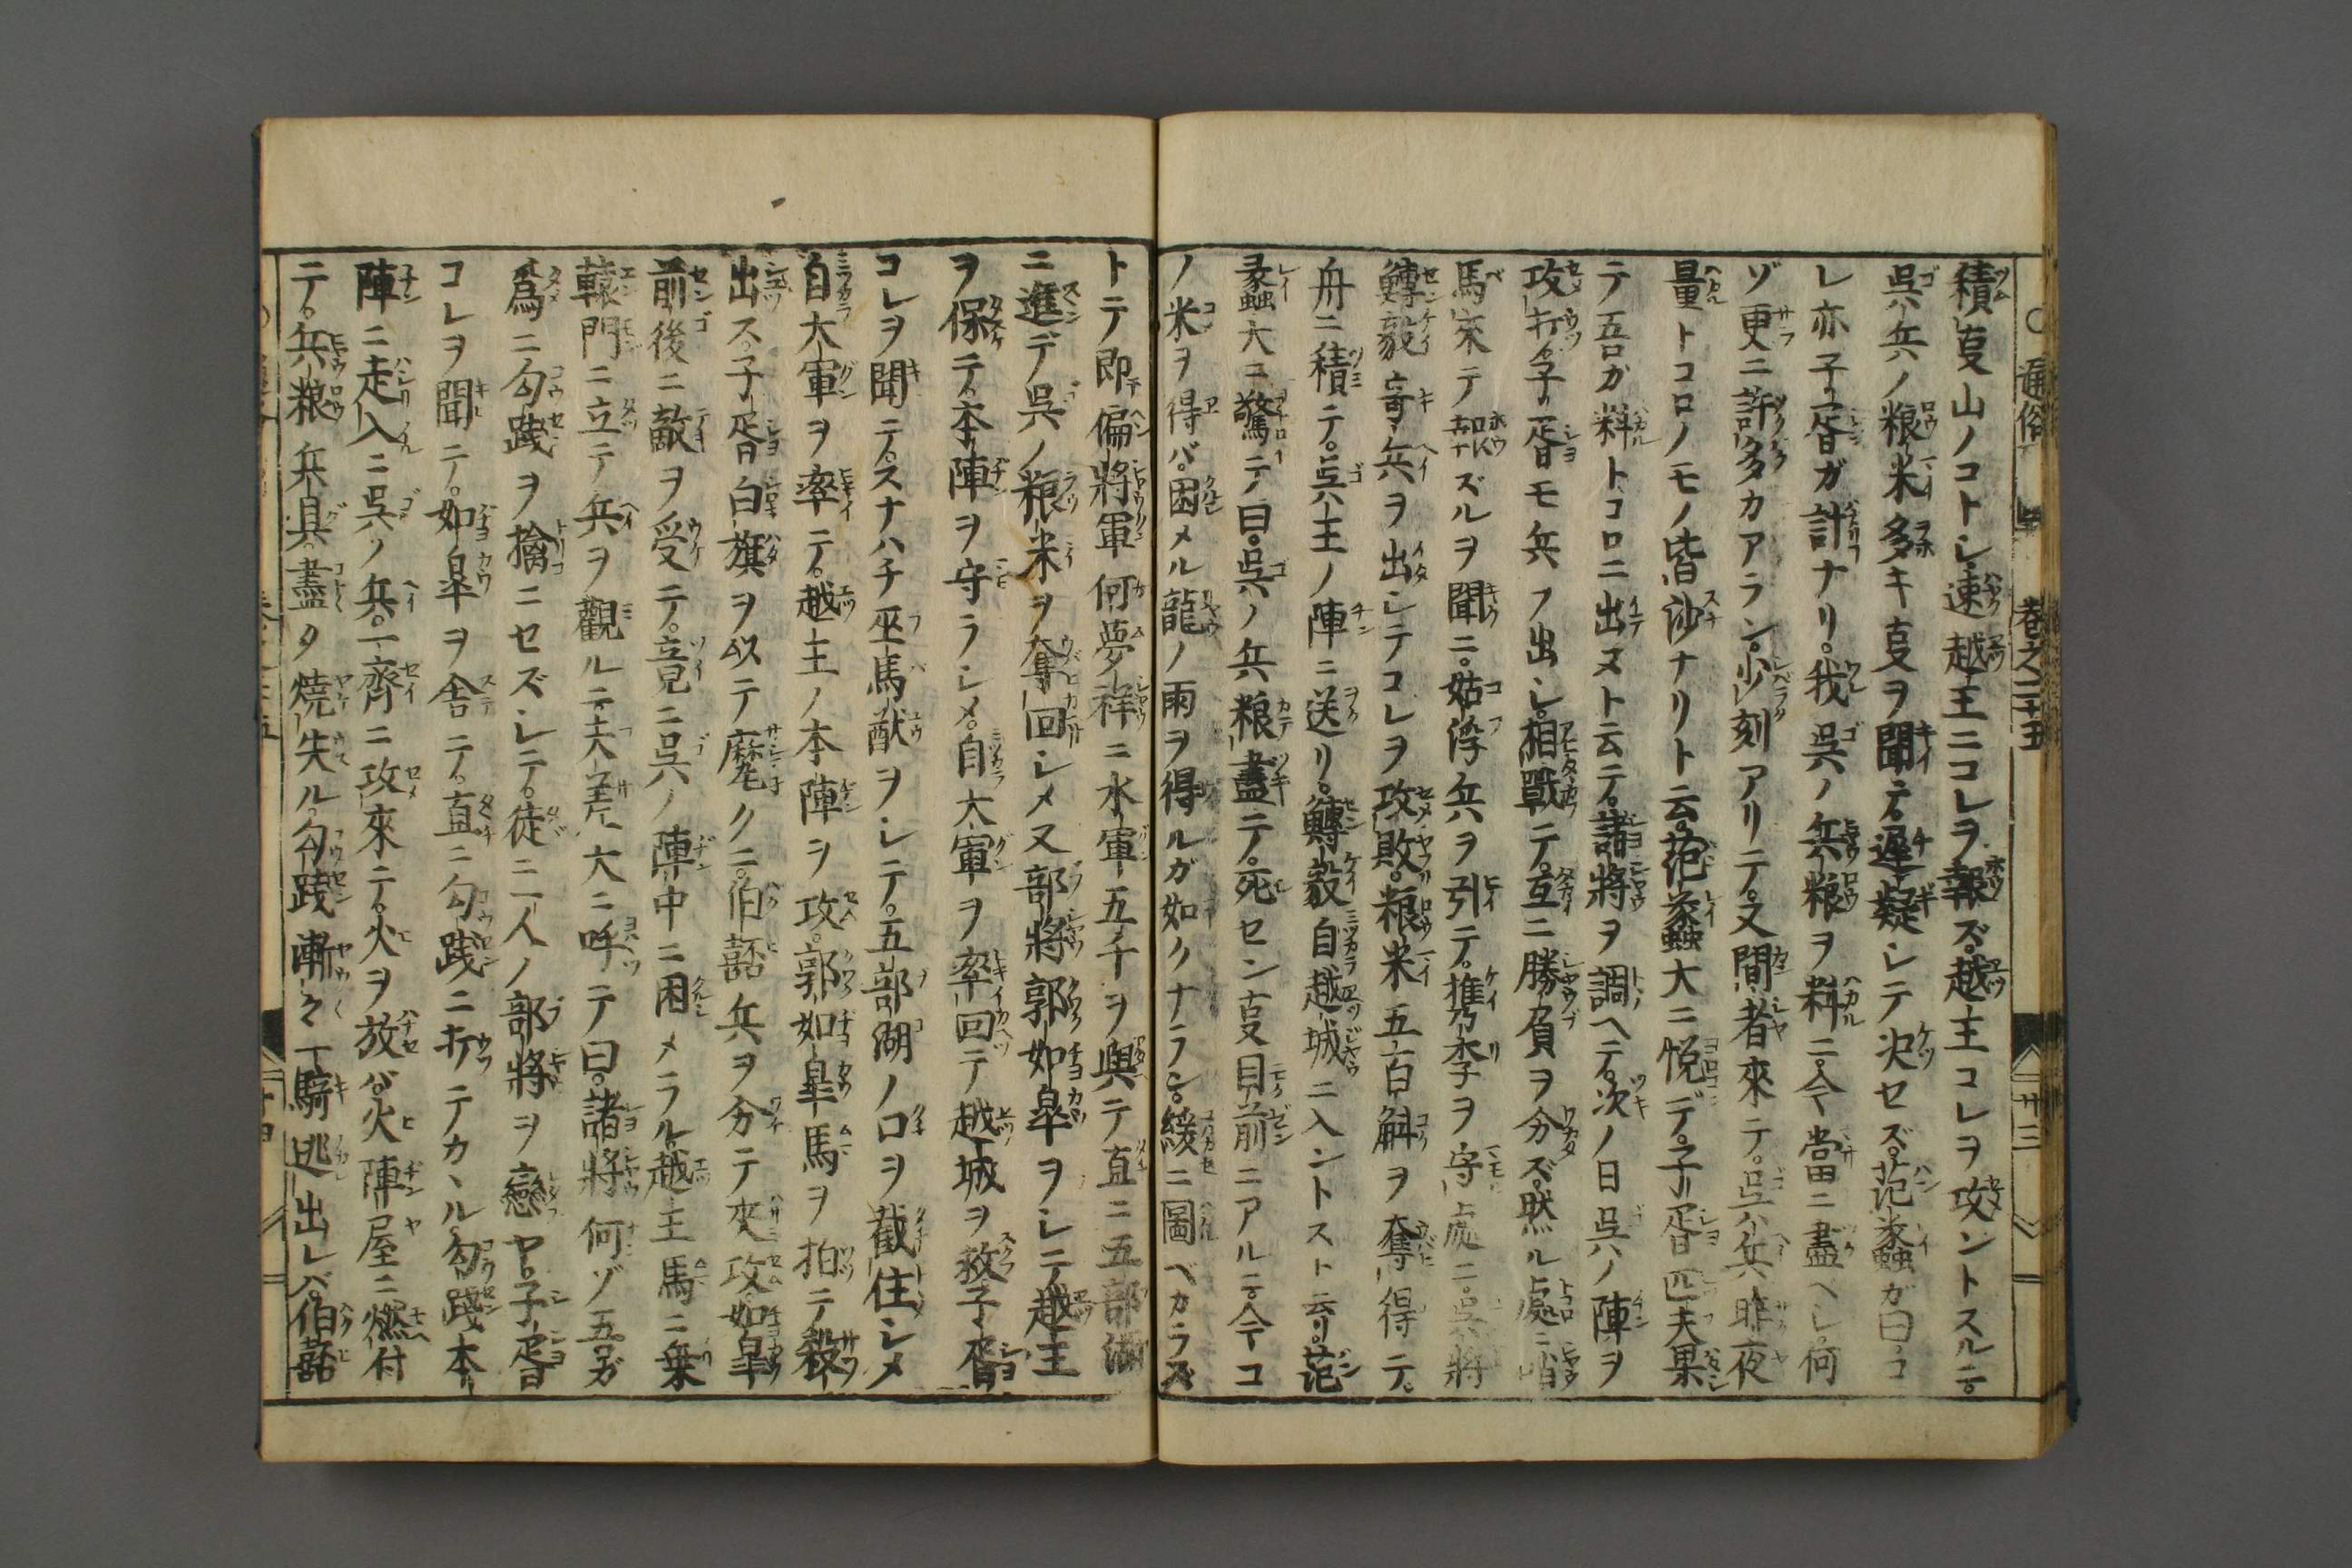 通俗 巻之二十五 廿三
積夏山ノコトシ速越王ニコレヲ報ズ越王コレヲ攻ントスルニ
呉ハ兵ノ粮米多キ夏ヲ聞テ遲疑シテ决セズ范蠡ガ曰コ
レ亦子胥ガ計ナリ我呉ノ兵粮ヲ料ルニ今當ニ盡ヘシ何
ゾ更ニ許多カアラン少刻アリテ又間者來テ呉ハ兵昨夜
量トコロノモノ皆沙ナリト云范蠡大ニ悦デ子胥匹夫果
テ吾ガ料トコロニ出ヌト云テ諸將ヲ調ヘテ次ノ日呉ノ陣ヲ
攻打子胥モ兵ヲ出シ相戰テ互ニ勝負ヲ分ズ然ル處ニ哨
馬來テ報ズルヲ聞ニ姑浮兵ヲ引テ携李ヲ守ル處ニ呉將
鱄毅竒兵ヲ出シテコレヲ攻敗粮米五百斛ヲ奪得テ
舟ニ積テ呉王ノ陣ニ送リ鱄毅自越城ニ入ントスト云リ范
蠡大ニ驚テ曰呉ノ兵粮盡テ死セン夏目前ニアルニ今コ
ノ米ヲ得バ困メル龍ノ雨ヲ得ルガ如クナラン緩ニ圖ベカラズ
トテ即偏將軍何夢祥ニ水軍五千ヲ與テ直ニ五部湖
ニ進デ呉ノ粮米ヲ奪回シメ又部將郭如皐ヲシテ越王
ヲ保テ本陣ヲ守ラシメ自大軍ヲ率回テ越城ヲ救子胥
コレヲ聞テスナハチ巫馬猷ヲシテ五部湖ノ口ヲ截住シメ
自大軍ヲ率テ越主ノ本陣ヲ攻郭如皐馬ヲ拍テ殺
出ス子胥白旗ヲ以テ麾クニ伯嚭兵ヲ分テ夾攻如皐
前後ニ敵ヲ受テ竟ニ呉ノ陣中ニ困メラル越主馬ニ乗
轅門ニ立テ兵ヲ觀ルニ夫差大ニ呼テ曰諸將何ゾ吾ガ
爲ニ勾踐ヲ擒ニセズシテ徒ニ一人ノ部將ヲ戀ヤ子胥
コレヲ聞テ如皐ヲ舎テ直ニ勾踐ニ打テカヽル勾踐本
陣ニ走入ニ呉ノ兵一齊ニ攻來テ火ヲ放バ火陣屋ニ燃付
テ兵粮兵具盡ク焼失ル勾踐漸々一騎逃出レバ伯嚭